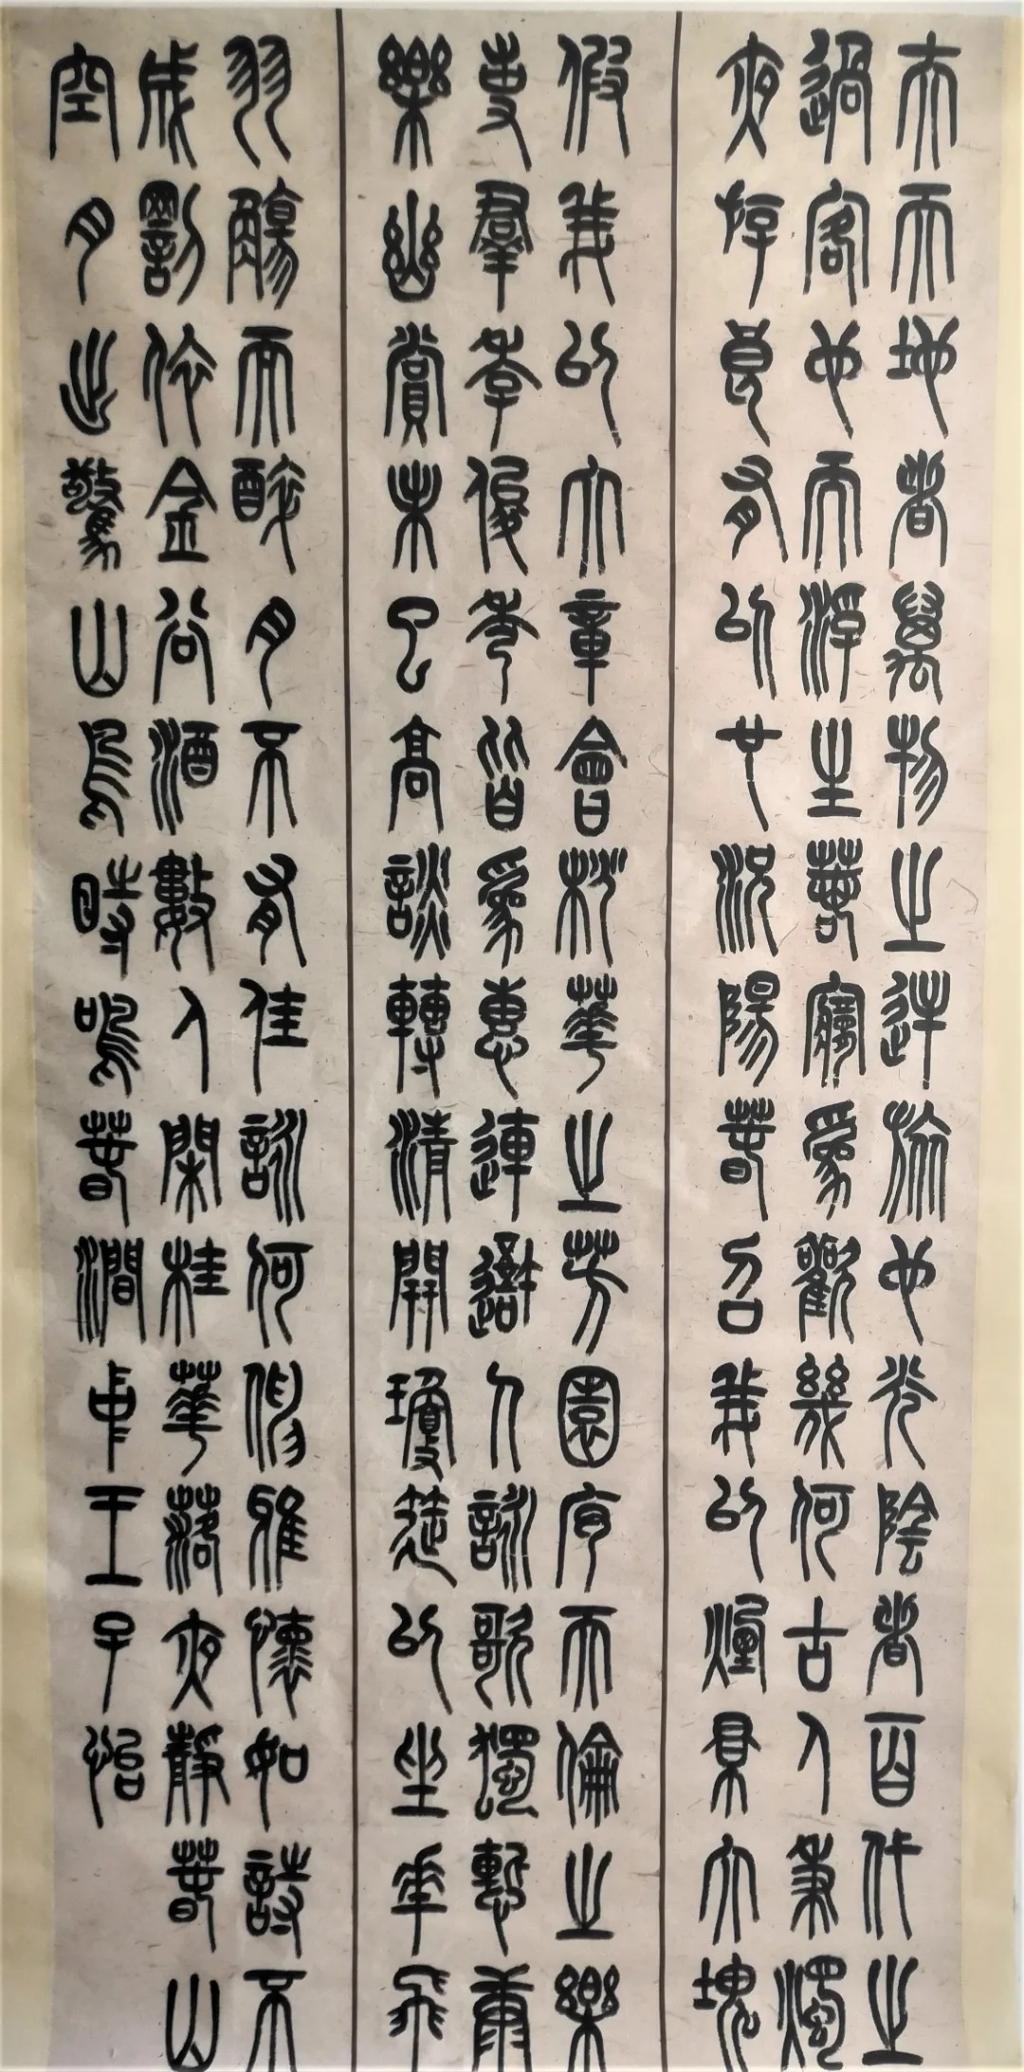 夫天地者萬物之逆旅也光陰者百代之
過客也而浮生若夢爲歡幾何古人秉燭
夜游良有以也況陽春召我以煙景大塊
假我以文章會桃華之芳園序天倫之樂
事羣季俊秀皆爲惠連吾人詠歌獨慙康
樂幽賞未已高談轉清開瓊筵以坐華飛
羽觴而醉月不有佳詠何伸雅懷如詩不
成罰依金谷酒數人閑桂華落夜靜春山
空月出驚山鳥時鳴春澗中王子怡